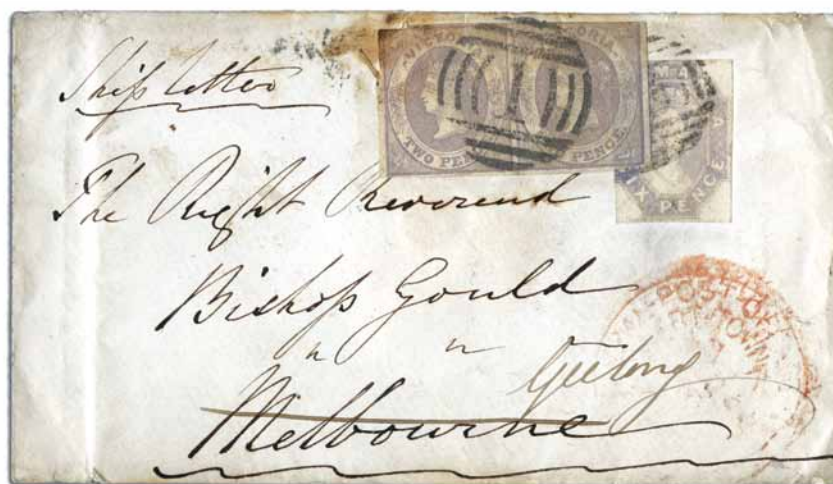 Ship letter
VICTORIA
TWO PENCE
1
SIX PENCE
The Right Reverend
Bishop Gould
" "
Geelong
Melbourne
POST OF
TOWN